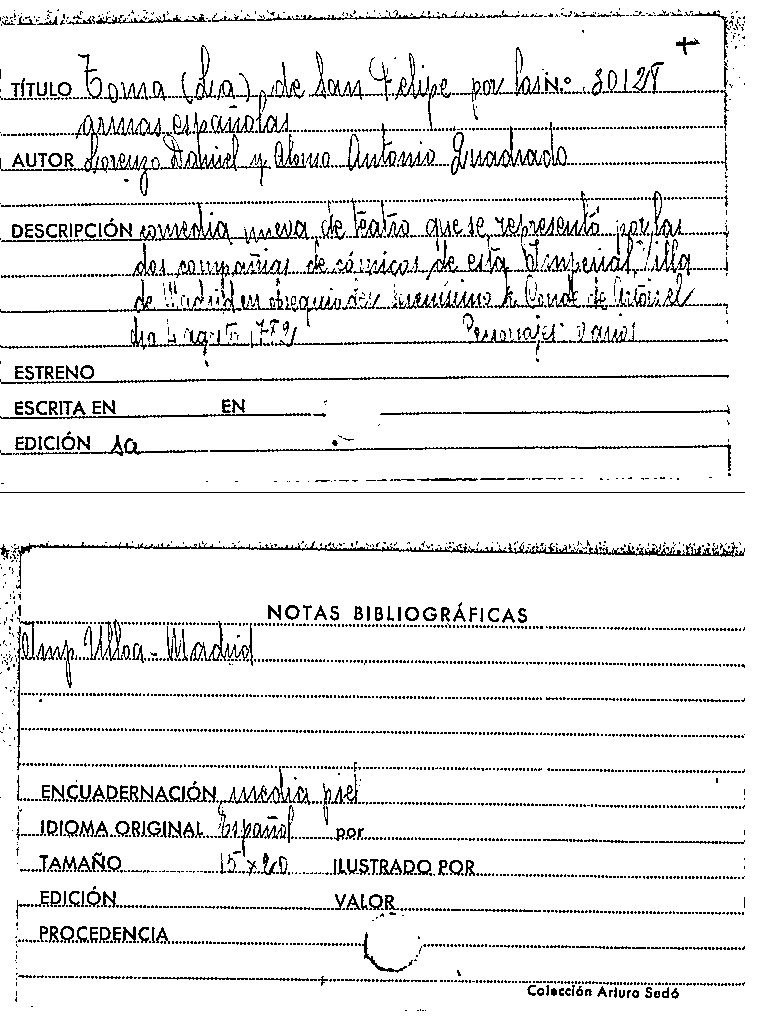 TÍTULO Toma (La), de San Felipe por las N.º 30128
armas españolas
AUTOR Lorenzo Daniel y Alonso Antonio Quadrado
DESCRIPCIÓN comedia nueva de teatro que se representó por las
dos compañias de cómicos de esta Imperial Villa
de Madrid en obsequio del Serenísimo Sr. Conde de Artois el
dia 4 agosto 1782 Personajes varios
ESTRENO
ESCRITA EN EN
EDICIÓN 1a
NOTAS BIBLIOGRÁFICAS
Imp. Ulloa - Madrid
ENCUADERNACIÓN media piel
IDIOMA ORIGINAL Español por
TAMAÑO 15 x 20 ILUSTRADO POR
EDICIÓN VALOR
PROCEDENCIA
Colección Arturo Sedó